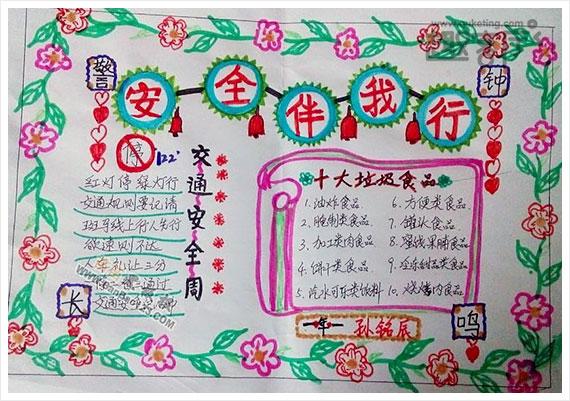 警
钟
安全伴我行
停
122
交通安全周
红灯停 绿灯行
交通规则要记清
班车线上行人先行
欲速则不达
人车礼让三分
一慢二看三通过
十大垃圾食品
1. 油炸食品
2. 腌制类食品
3. 加工类肉食品
4. 饼干类食品
5. 汽水可乐类饮料
6. 方便类食品
7. 罐头食品
8. 蜜饯果脯食品
9. 冷冻甜品类食品
10. 烧烤肉食品
长
鸣
一年一
孙铭辰